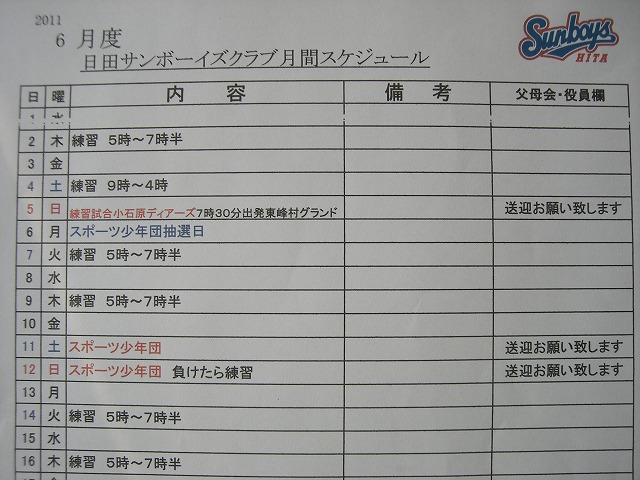 2011
6 月度
Sunboys
HITA
日田サンボーイズクラブ月間スケジュール
日 曜 内 容 備 考 父母会・役員欄
1 水
2 木 練習 5時～7時半
3 金
4 土 練習 9時～4時
5 日 練習試合小石原ディアーズ7時30分出発東峰村グランド 送迎お願い致します
6 月 スポーツ少年団抽選日
7 火 練習 5時～7時半
8 水
9 木 練習 5時～7時半
10 金
11 土 スポーツ少年団 送迎お願い致します
12 日 スポーツ少年団 負けたら練習 送迎お願い致します
13 月
14 火 練習 5時～7時半
15 水
16 木 練習 5時～7時半